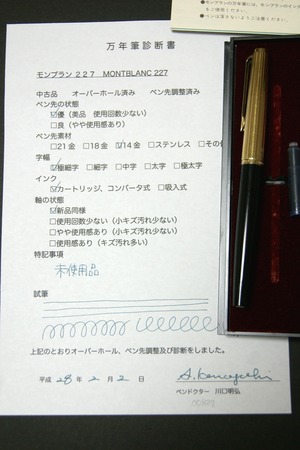 モンブランの万年筆には、モンブランのイン
をご使用ください。
●ペンは落さないようご注意ください。
万年筆診断書
モンブラン 227 MONTBLANC 227
中古品 オーバーホール済み ペン先調整済み
ペン先の状態
☑優(美品 使用回数少ない)
□良(やや使用感あり)
ペン先素材
□21金 □18金 ☑14金 □ステンレス □その
字幅
☑極細字 □細字 □中字 □太字 □極太字
インク
☑カートリッジ、コンバータ式 □吸入式
軸の状態
☑新品同様
□使用回数少ない(小キズ汚れ少ない)
□やや使用感あり(小キズ汚れ少ない)
□使用感あり(キズ汚れ多い)
特記事項
未使用品
試筆
上記のとおりオーバーホール、ペン先調整及び診断をしました。
平成 28年 2月 2日
ペンドクター 川口明弘